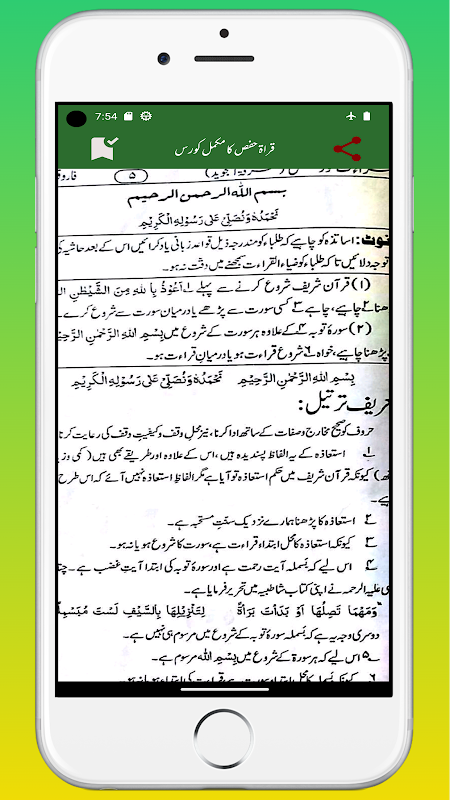 7:54
قراۃ حفص کا مکمل کورس
۵
بسم اللہ الرحمن الرحیم
نَحْمَدُهٗ وَنُصَلِّیْ عَلٰی رَسُوْلِهِ الْکَرِیْمِ
نوٹ: اساتذہ کو چاہیے کہ طلباء کو مندرجہ ذیل قواعد زبانی یاد کرائیں اس کے بعد حاشیہ کی
توجہ دلائیں تاکہ طلباء کو ضیاء القراءت سمجھنے میں دقت نہ ہو۔
(۱) قرآن شریف شروع کرنے سے پہلے ۱؎ اَعُوْذُ بِاللہِ مِنَ الشَّیْطٰنِ
ھنا ۲؎ چاہیے، چاہے ۳؎ کسی سورت سے پڑھے یا درمیان سورت سے شروع کرے۔
(۲) سورۂ توبہ ۴؎ کے علاوہ ہر سورت کے شروع میں بِسْمِ اللہِ الرَّحْمٰنِ الرَّحِیْمِ
پڑھنا چاہیے، خواہ ۶؎ شروع قراءت ہو یا درمیان قراءت ہو۔
بِسْمِ اللہِ الرَّحْمٰنِ الرَّحِیْمِ نَحْمَدُهٗ وَنُصَلِّیْ عَلٰی رَسُوْلِهِ الْکَرِیْمِ
عریف ترتیل:
حروف کو صحیح مخارج و صفات کے ساتھ ادا کرنا، نیز محل وقف و کیفیت وقف کی رعایت کرنا
۱؎ استعاذہ کے یہ الفاظ پسندیدہ ہیں، اس کے علاوہ اور طریقے بھی ہیں (کمی
کیونکہ قرآن شریف میں حکم استعاذہ تو آیا ہے مگر الفاظ استعاذہ نہیں آئے کہ اس طرح
۲؎ استعاذہ کا پڑھنا ہمارے نزدیک سنت مستحبہ ہے۔
۳؎ کیونکہ استعاذہ کا محل ابتداء قراءت ہے، سورت کا شروع ہو یا نہ ہو۔
۴؎ اس لیے کہ بسملہ آیت رحمت ہے اور سورۂ توبہ کی ابتداء آیت غضب ہے۔
علیہ الرحمہ نے اپنی کتاب شاطبیہ میں تحریر فرمایا ہے۔
وَمَهْمَا تَصِلْهَا اَوْ بَدَأْتَ بَرَاءَةً لِتَنْزِیْلِهَا بِالسَّیْفِ لَسْتَ مُبَسْمِلًا
دوسری وجہ یہ ہے کہ بسملہ سورۂ توبہ کے شروع میں مرسوم ہی نہیں ہے۔
۵؎ اس لیے کہ ہر سورۃ کے شروع میں بِسْمِ اللہ مرسوم ہے۔